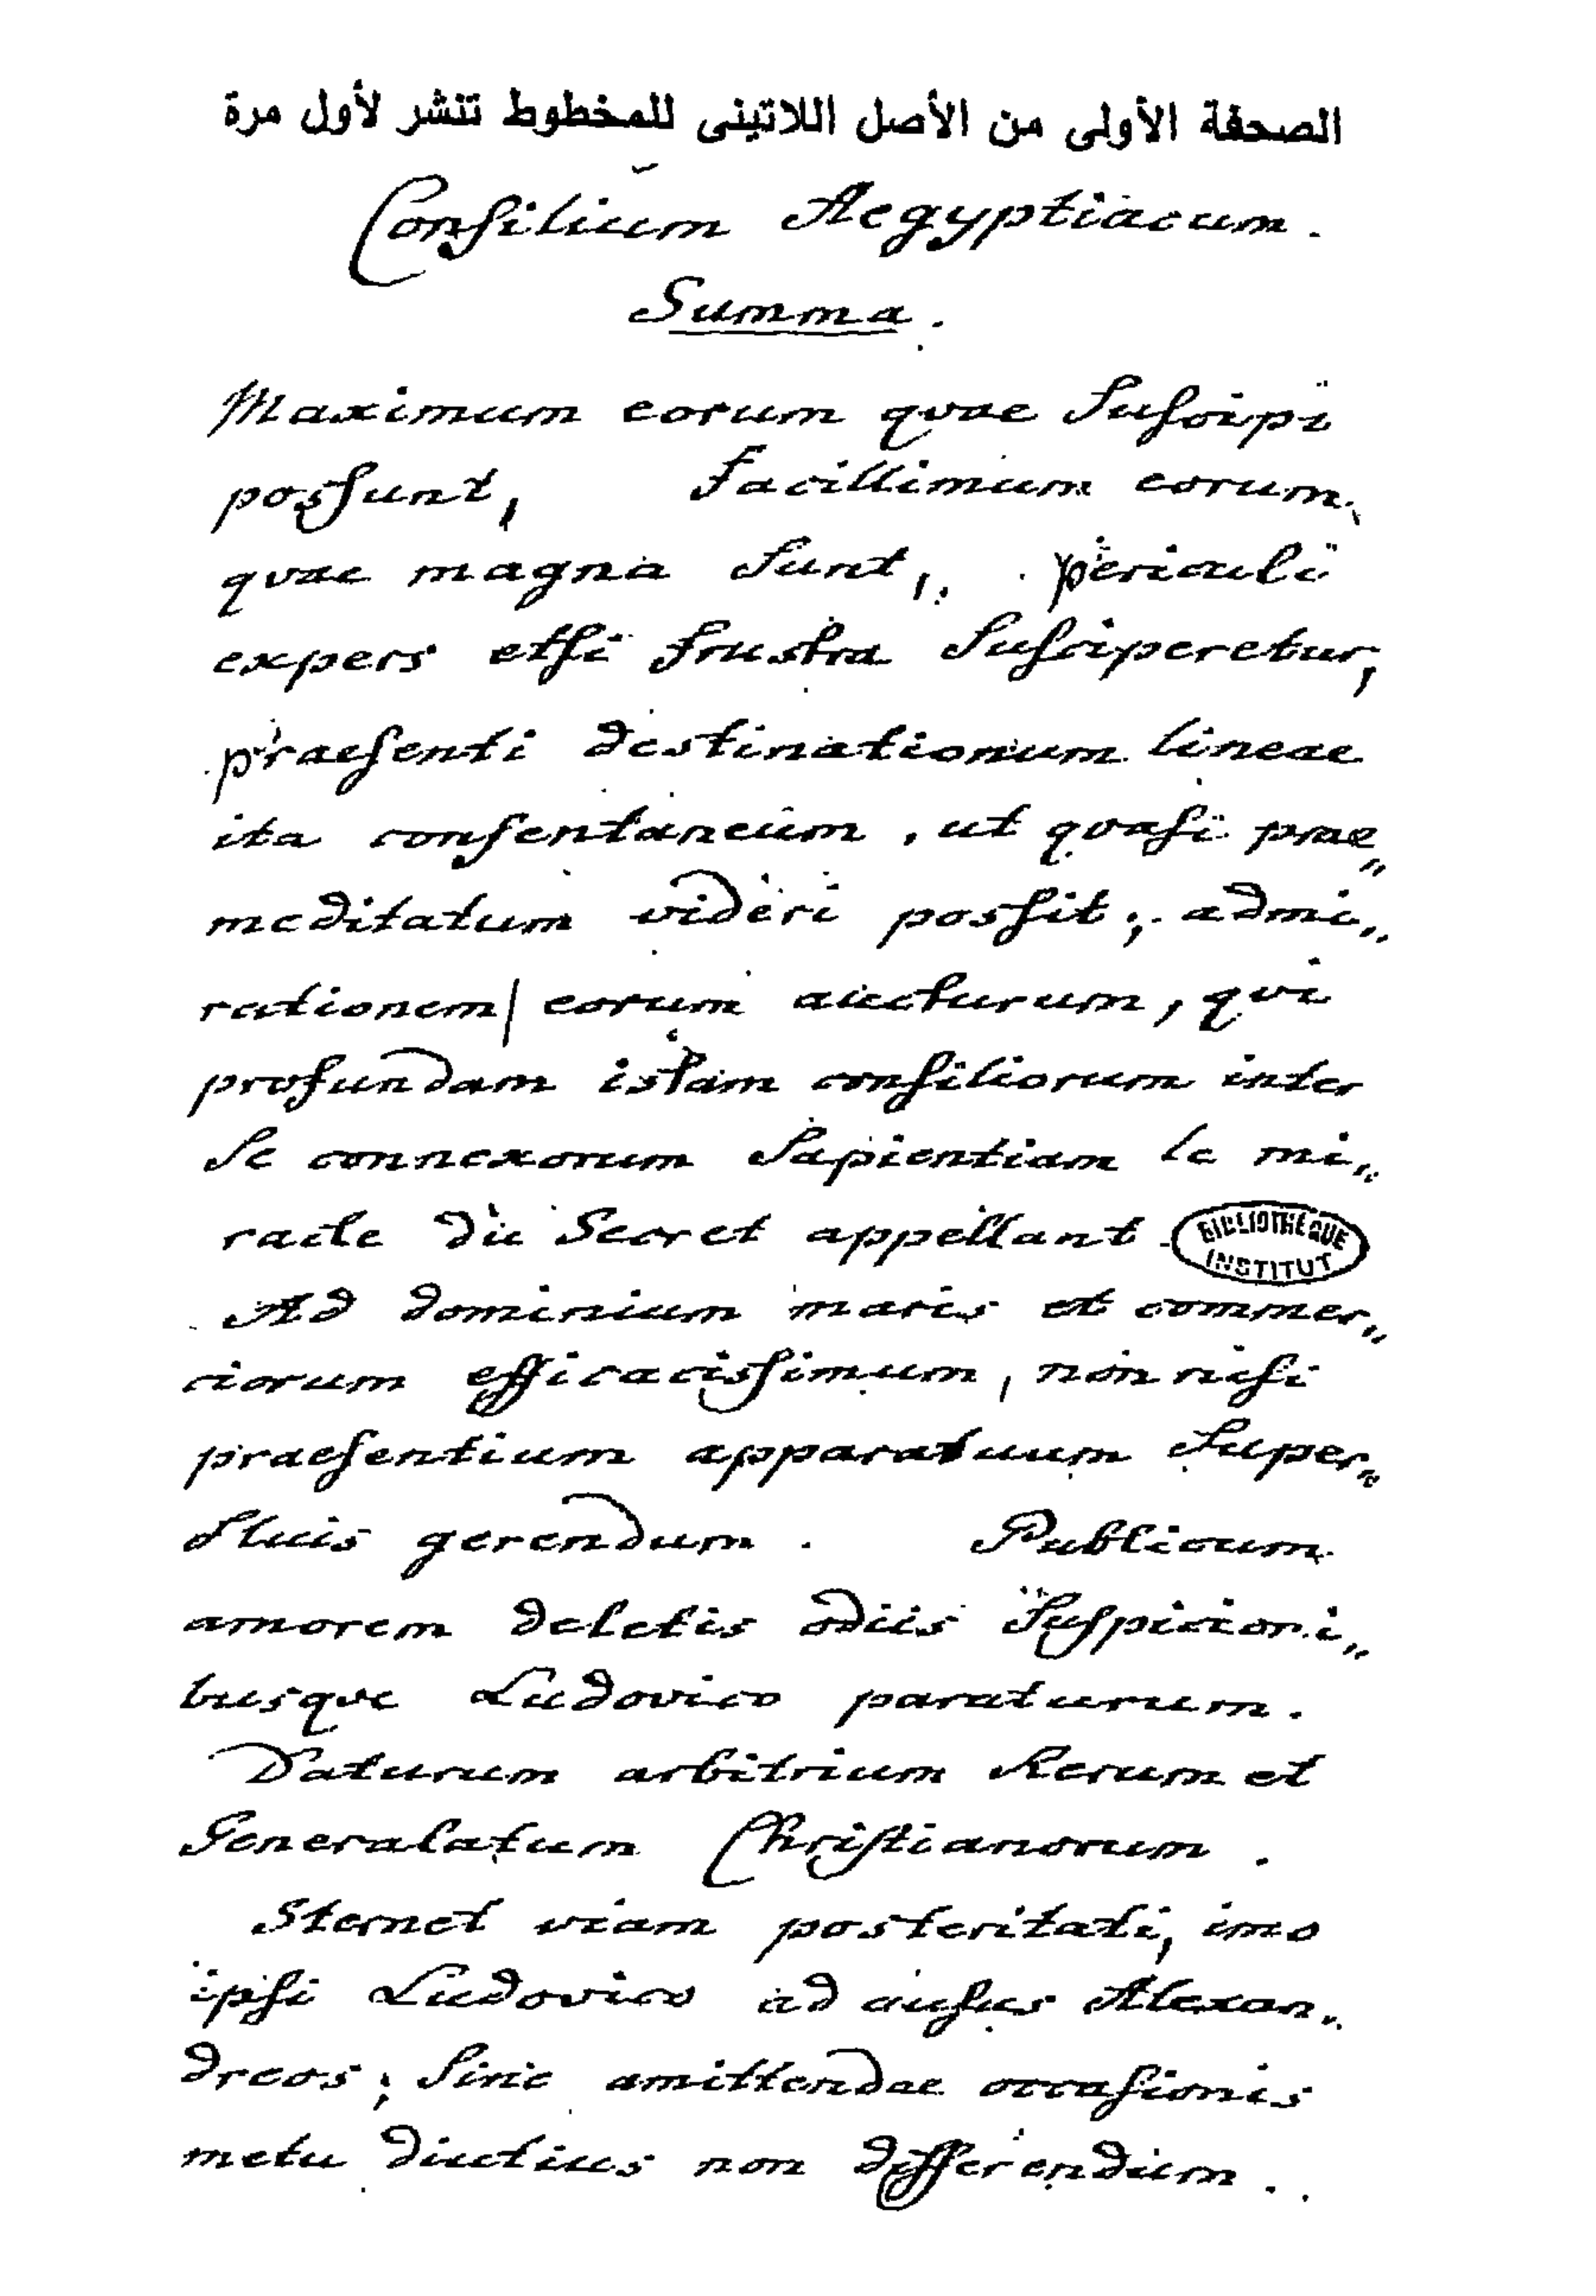 الصحفة الأولى من الأصل اللاتينى للمخطوط تنشر لأول مرة
Consilium Aegyptiacum.
Summa.
Maximum eorum qvae suscipi
possunt, facillimum eorum,
qvae magna sunt, periculi
expers etsi frustra susciperetur,
praesenti destinationum lineae
ita consentaneum, ut qvasi prae„
meditatum videri possit; admi„
rationem| eorum aucturum, qvi
profundam istam consiliorum inter
se connexorum sapientiam le mi„
racle du Secret appellant.
BIBLIOTHÈQUE
INSTITUT
Ad dominium maris et commer„
ciorum efficacissimum, non nisi
praesentium apparatuum super„
fluis gerendum. Publicum
amorem deletis odiis suspicioni„
busqve Ludovico paraturum.
Daturum arbitrium Rerum et
Generalatum Christianorum.
Sternet viam posteritati, imo
ipsi Ludovico ad ausus Alexan„
dreos; sine amittendae occasionis
metu diutius non differendum.